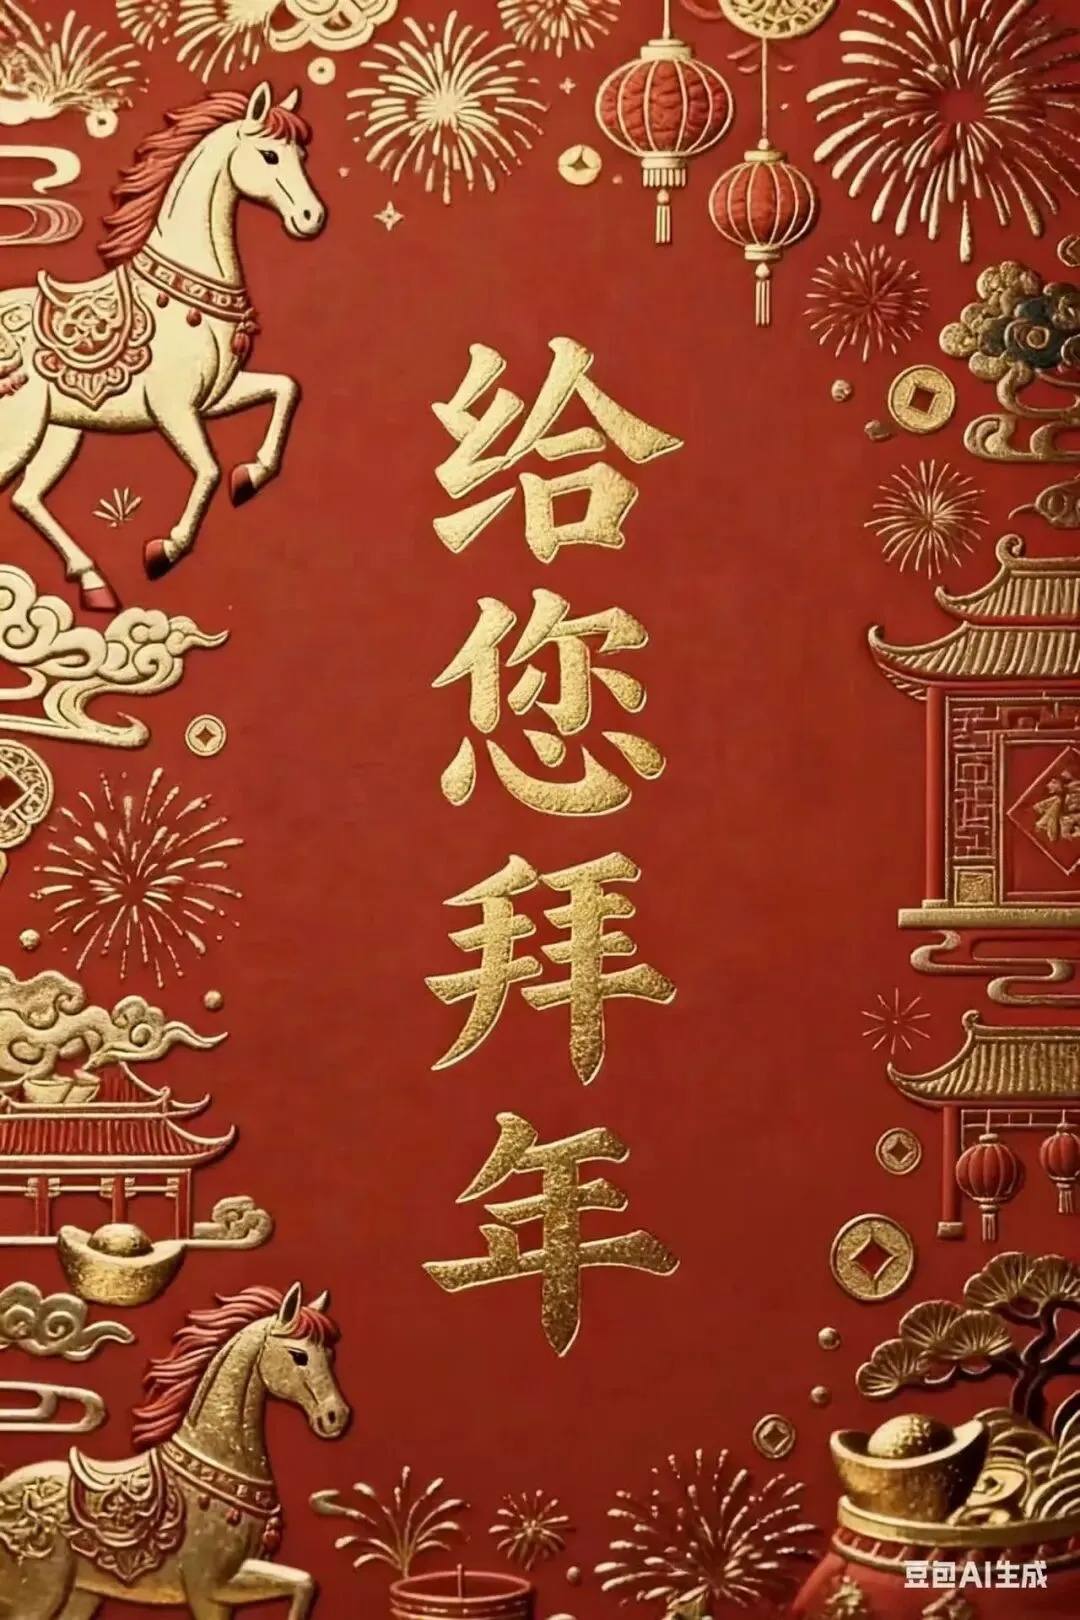 给您拜年
福
豆包AI生成